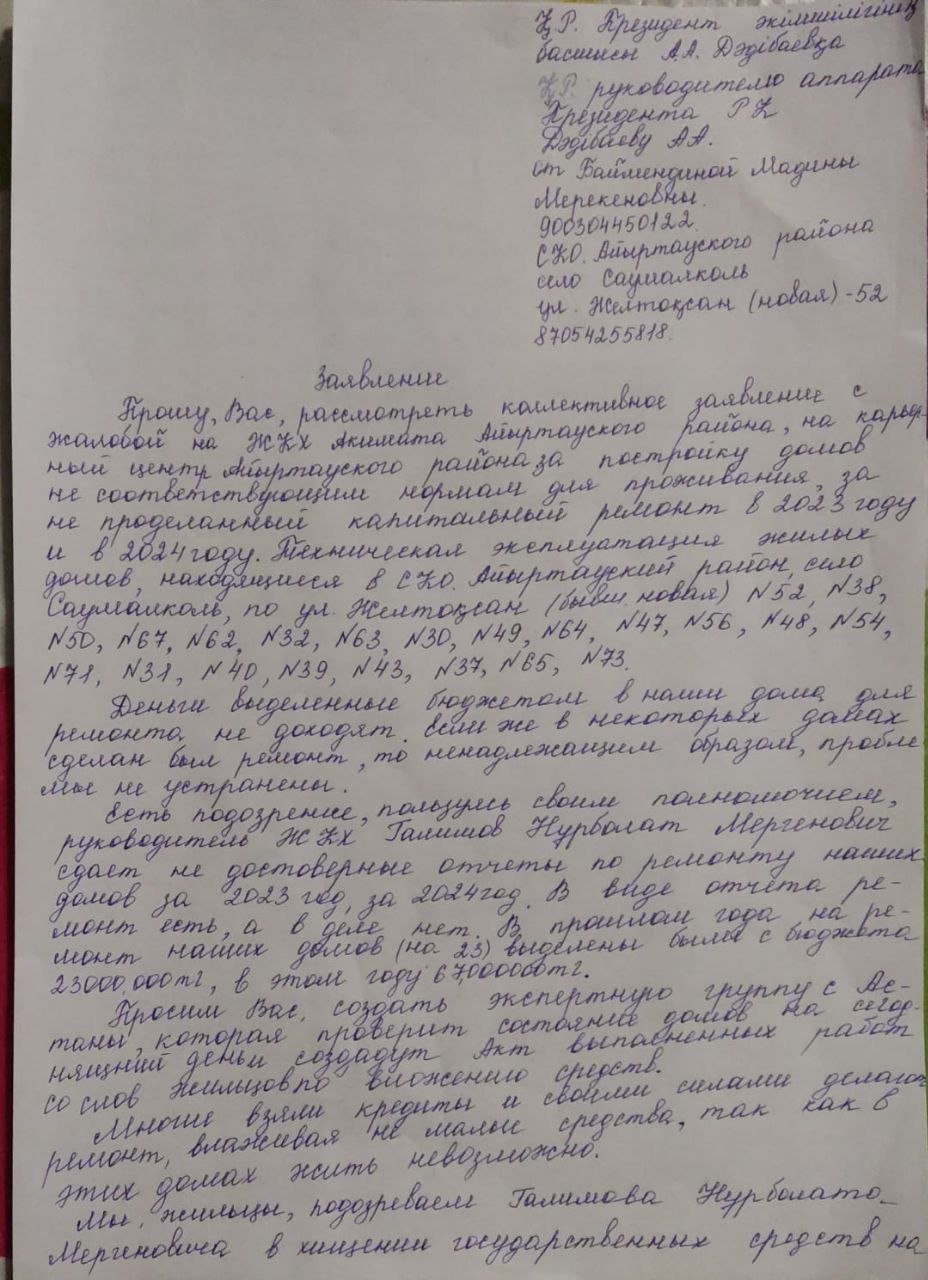 Қ.Р. Президент әкімшілігінің
басшысы А.А. Дәдібаевқа
Қ.Р. руководителю аппарата
Президента РК
Дәдібаеву А.А.
от Баймендиной Мадины
Мерекеновны.
900304450122
СКО. Айыртауского района
село Саумалколь
ул. Желтоқсан (новая) - 52
87054255818.
Заявление
Прошу, Вас, рассмотреть коллективное заявление с
жалобой на ЖКХ Акимата Айыртауского района, на карьер-
ный центр Айыртауского района за постройку домов
не соответствующим нормам для проживания, за
не проделанный капитальный ремонт в 2023 году
и в 2024 году. Техническая эксплуатация жилых
домов, находящиеся в СКО. Айыртауский район, село
Саумалколь, по ул. Желтоқсан (бывш. новая) N52, N38,
N50, N67, N62, N32, N63, N30, N49, N64, N47, N56, N48, N54,
N71, N31, N40, N39, N43, N37, N65, N73.
Деньги выделенные бюджетом в наши дома для
ремонта не доходят. Если же в некоторых домах
сделан был ремонт, то ненадлежащим образом, пробле
мы не устранены.
Есть подозрение, пользуясь своим полномочием,
руководитель ЖКХ Галимов Нурболат Мергенович
сдает не достоверные отчеты по ремонту наших
домов за 2023 год, за 2024 год. В виде отчета ре-
монт есть, а в деле нет. В прошлом года на ре-
монт наших домов (на 23) выделены были с бюджета
23000,000тг, в этом году 67,000000тг.
Просим Вас, создать экспертную группу с Ас-
таны, которая проверит состояние домов на сегод-
нящний день и создадут Акт выполненных работ
со слов жилицов по вложению средств.
Многие взяли кредиты и своими силами делают
ремонт, влаживая не малые средства, так как в
этих домах жить невозможно.
Мы, жильцы, подозреваем Галимова Нурболато-
Мергеновича в хищении государственных средств на